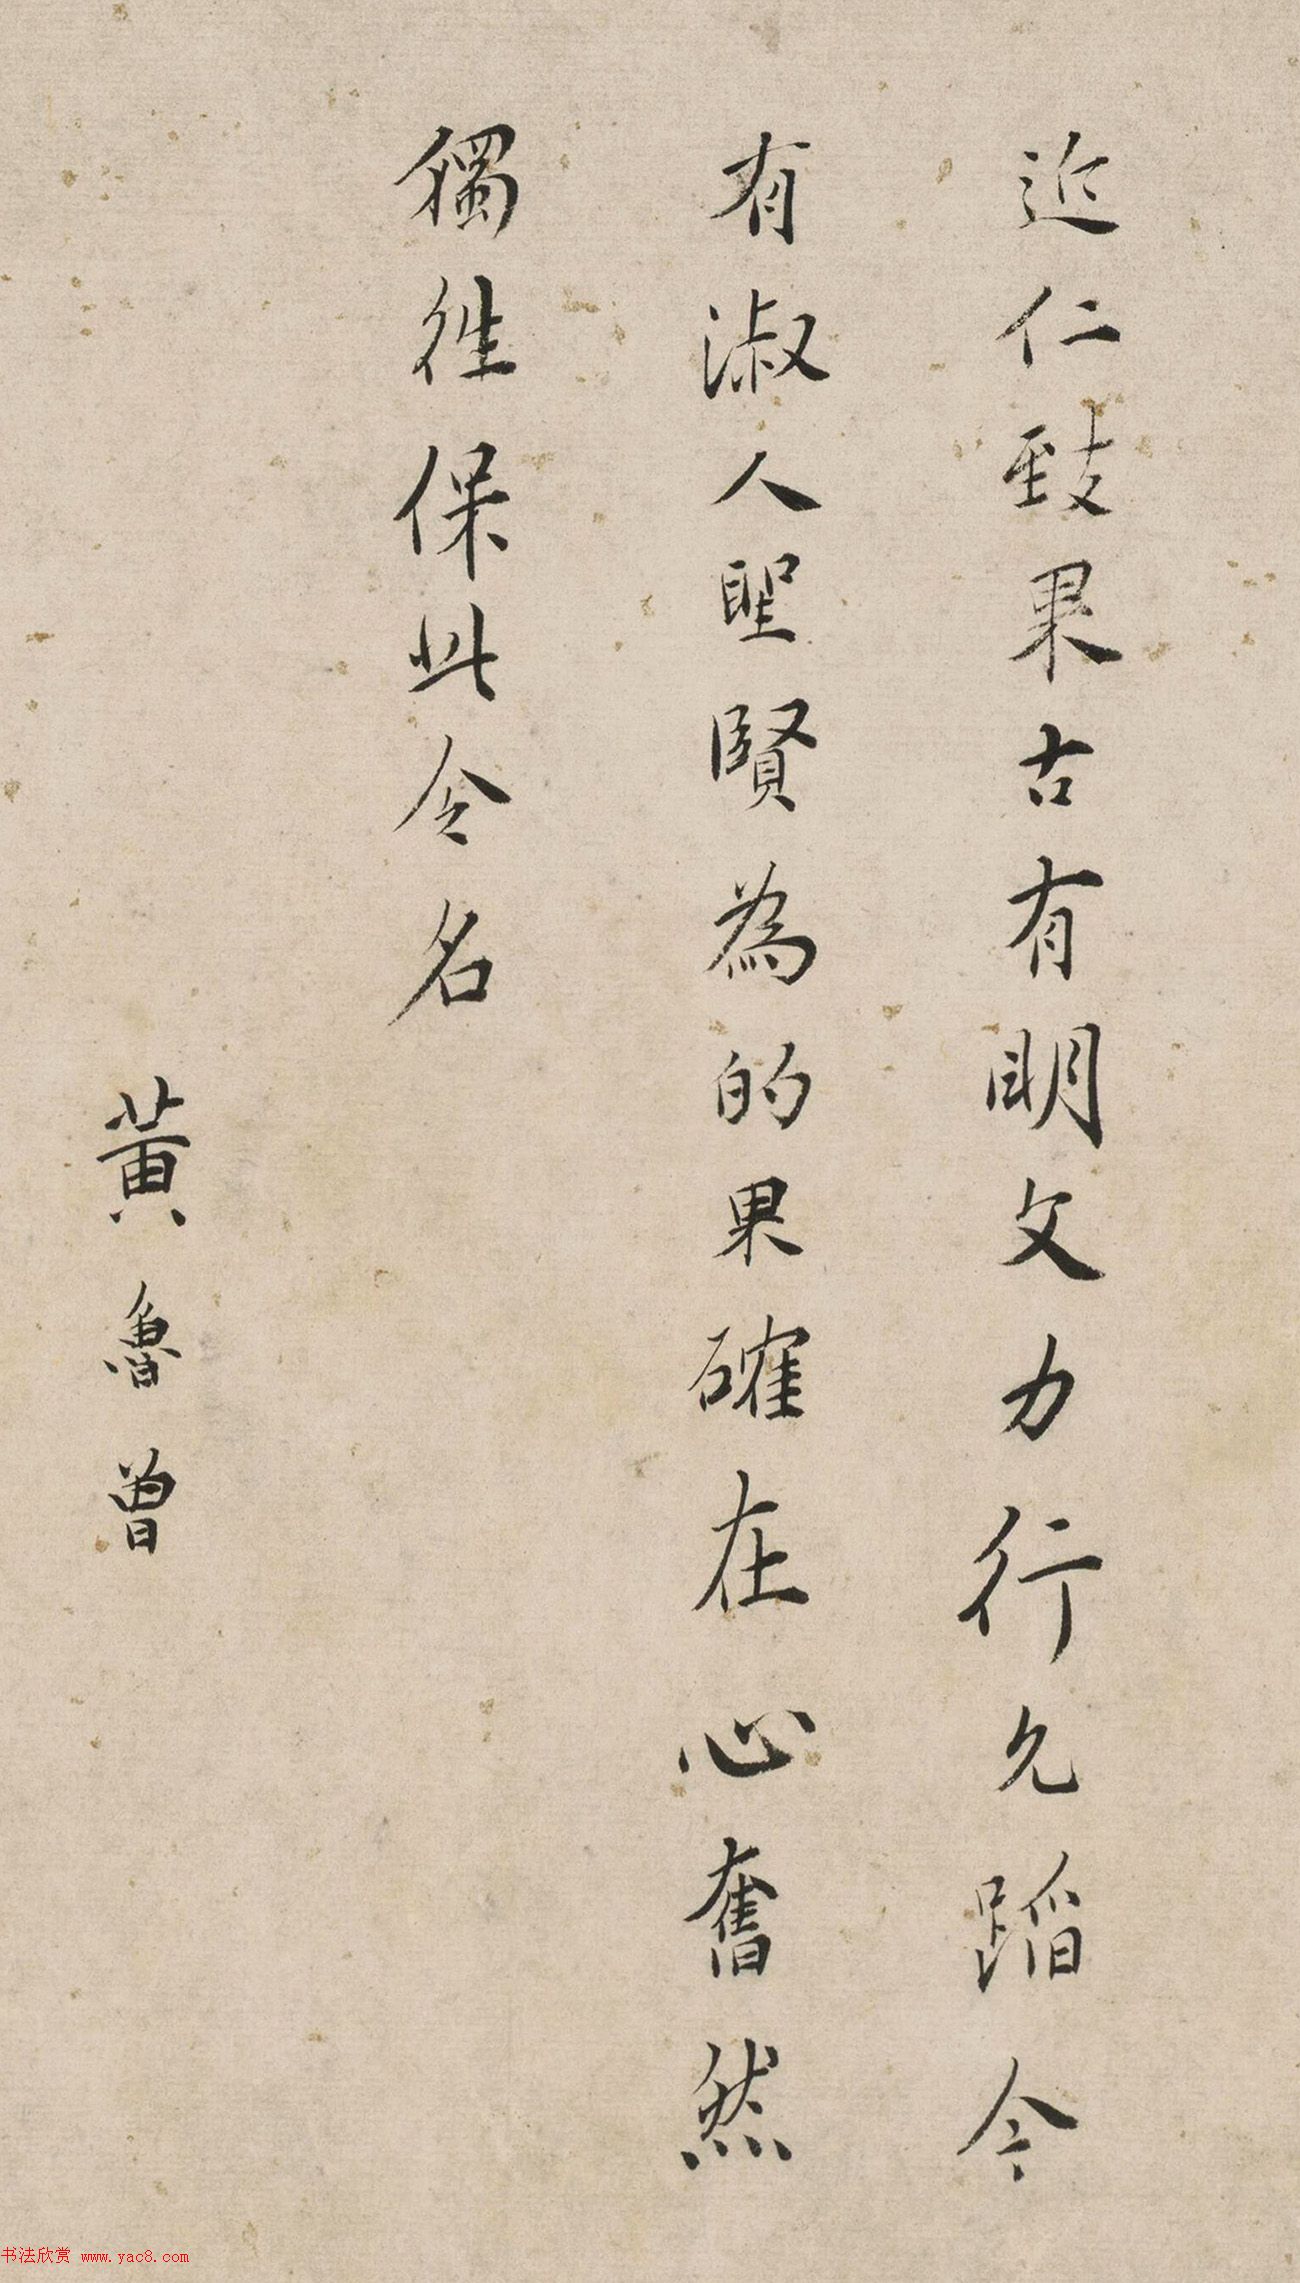 近仁致果古有明文力行允蹈今
有淑人聖賢為的果確在心奮然
獨往保此令名
黃魯曾
书法欣赏 www.yac8.com